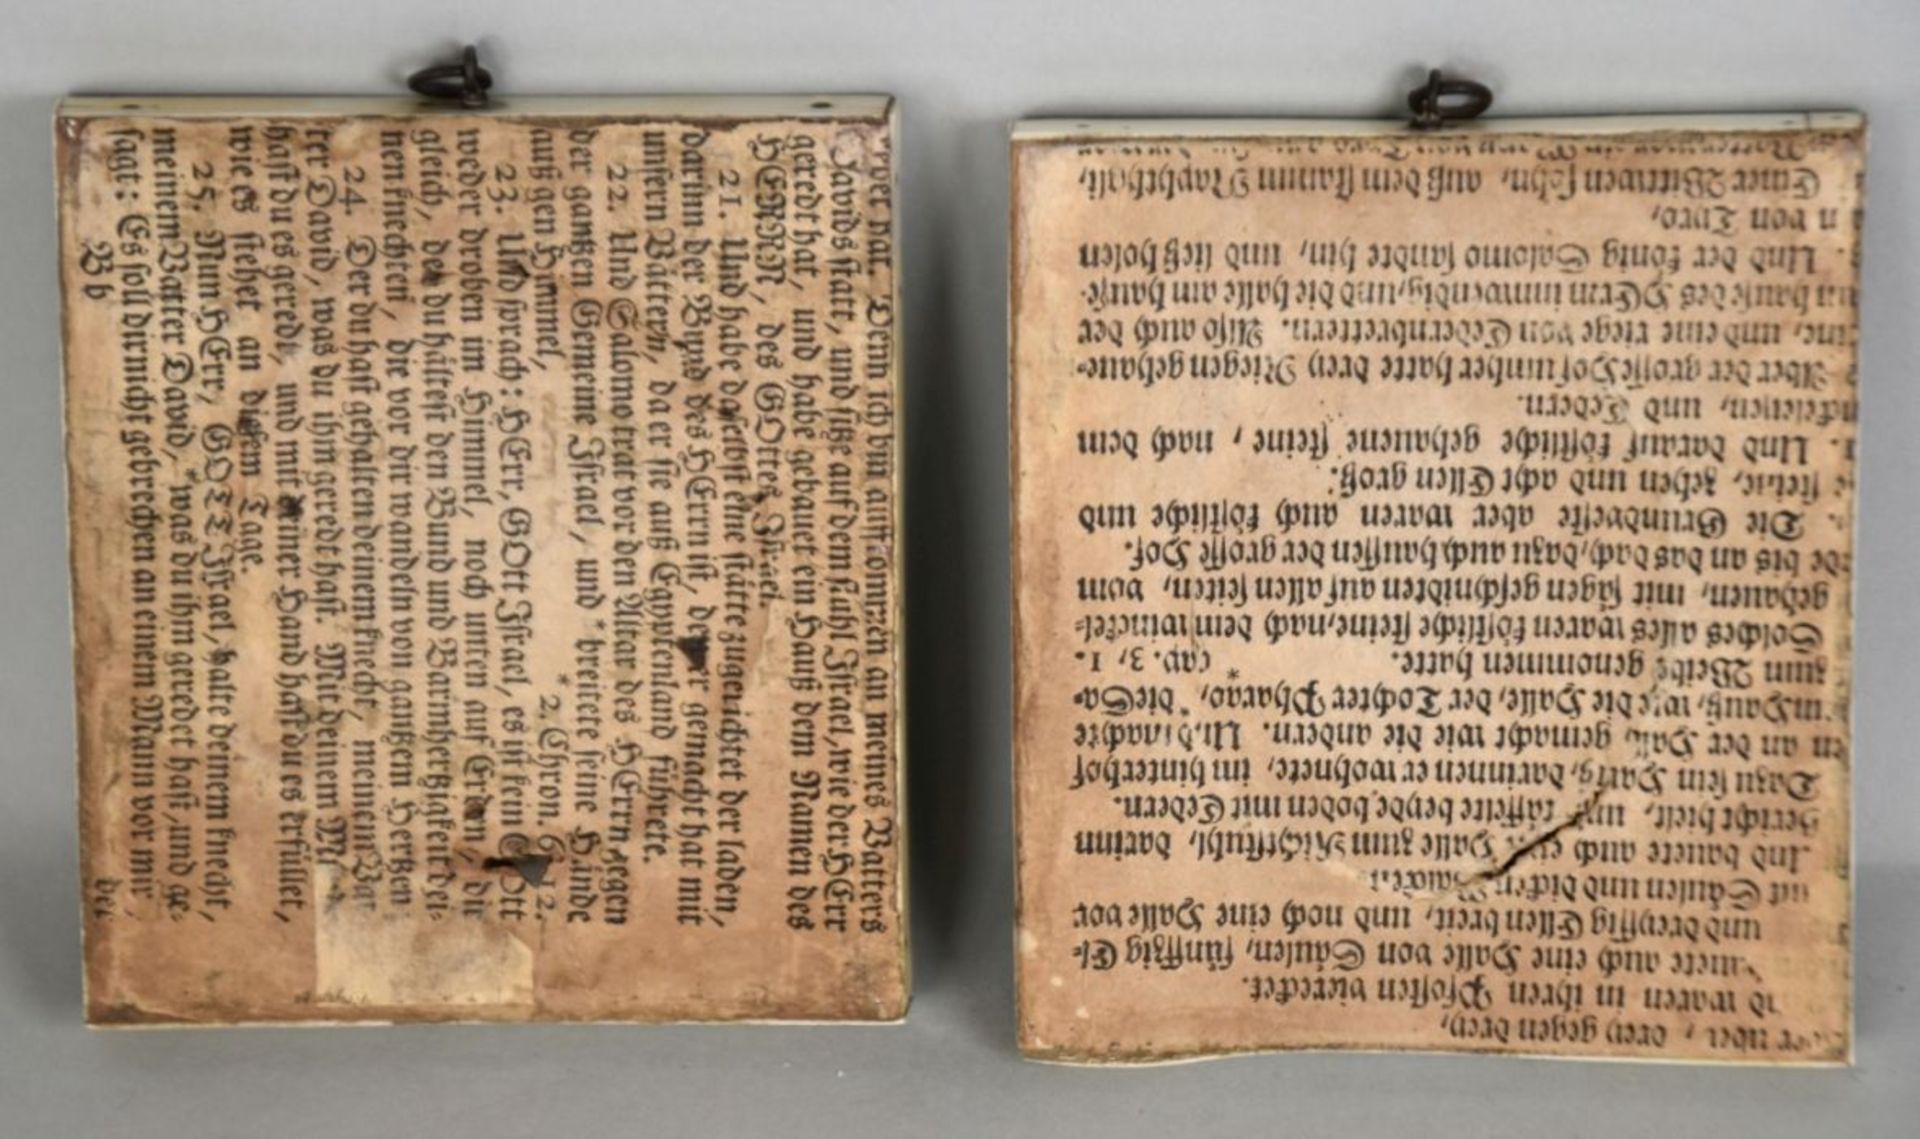 hat. Denn ich bin auffkommen an meines Vatters
Davids statt, und sitze auf dem stuhl Israel, wie der HErr
geredt hat, und habe gebauet ein Hauß dem Namen des
HERRN, des GOttes Israel.
21. Und habe daselbst eine stätte zugerichtet der laden,
darinn der Bund des HErrn ist, den er gemacht hat mit
unsern Vättern, da er sie auß Egyptenland führete.
22. Und Salomo trat vor den Altar des HErrn gegen
der gantzen Gemeine Israel, und *breitete seine Hände
auß gen Himmel, *2. Chron. 6, 12.
23. Und sprach: HErr, GOtt Israel, es ist kein GOtt
weder droben im Himmel, noch unten auf Erden, dir
gleich, der du hältest den Bund und Barmhertzigkeit dei-
nen knechten, die vor dir wandeln von gantzem Hertzen.
24. Der du hast gehalten deinem knecht, meinem Vat-
ter David, was du ihm geredt hast. Mit deinem
hast du es geredt, und mit deiner Hand hast du es erfüllet,
wie es stehet an diesem Tage.
25. Nun HErr, GOTT Israel, halte deinem knecht,
meinem Vatter David, *was du ihm geredet hast, und ge-
sagt: Es soll dir nicht gebrechen an einem Mann vor mir,
B b der
über, drey gegen drey,
waren in ihren Pfosten viereckt.
auete auch eine Halle von Säulen, fünffzig El-
und dreyssig Ellen breit, und noch eine Halle vor
mit Säulen und dicken Balcken.
Und bauete auch eine Halle zum Richtstuhl, darinn
Gericht hielt, und täffelte beyde boden mit Cedern.
Dazu sein Hauß, darinnen er wohnete, im hinterhof
en an der Halle gemacht wie die andern. Und machte
ein Hauß, wie die Halle, der Tochter Pharao, *die Sa-
zum Weibe genommen hatte. *cap. 3, 1.
Solches alles waren köstliche steine, nach dem winckel-
gehauen, mit sägen geschnidten auf allen seiten, vom
bis an das dach, dazu auch haussen der grosse Hof.
Die Grundveste aber waren auch köstliche und
steine, zehen und acht Ellen groß.
Und darauf köstliche gehauene steine, nach dem
und Cedern.
Aber der grosse Hof umher hatte drey Riegen gehaue-
ine, und eine riege von Cedernbrettern. Also auch der
am hause des HErrn inwendig, und die halle am hause.
Und der könig Salomo sandte hin, und ließ holen
n von Tyro,
Einer Wittwen sohn, auß dem stamm Naphthali,